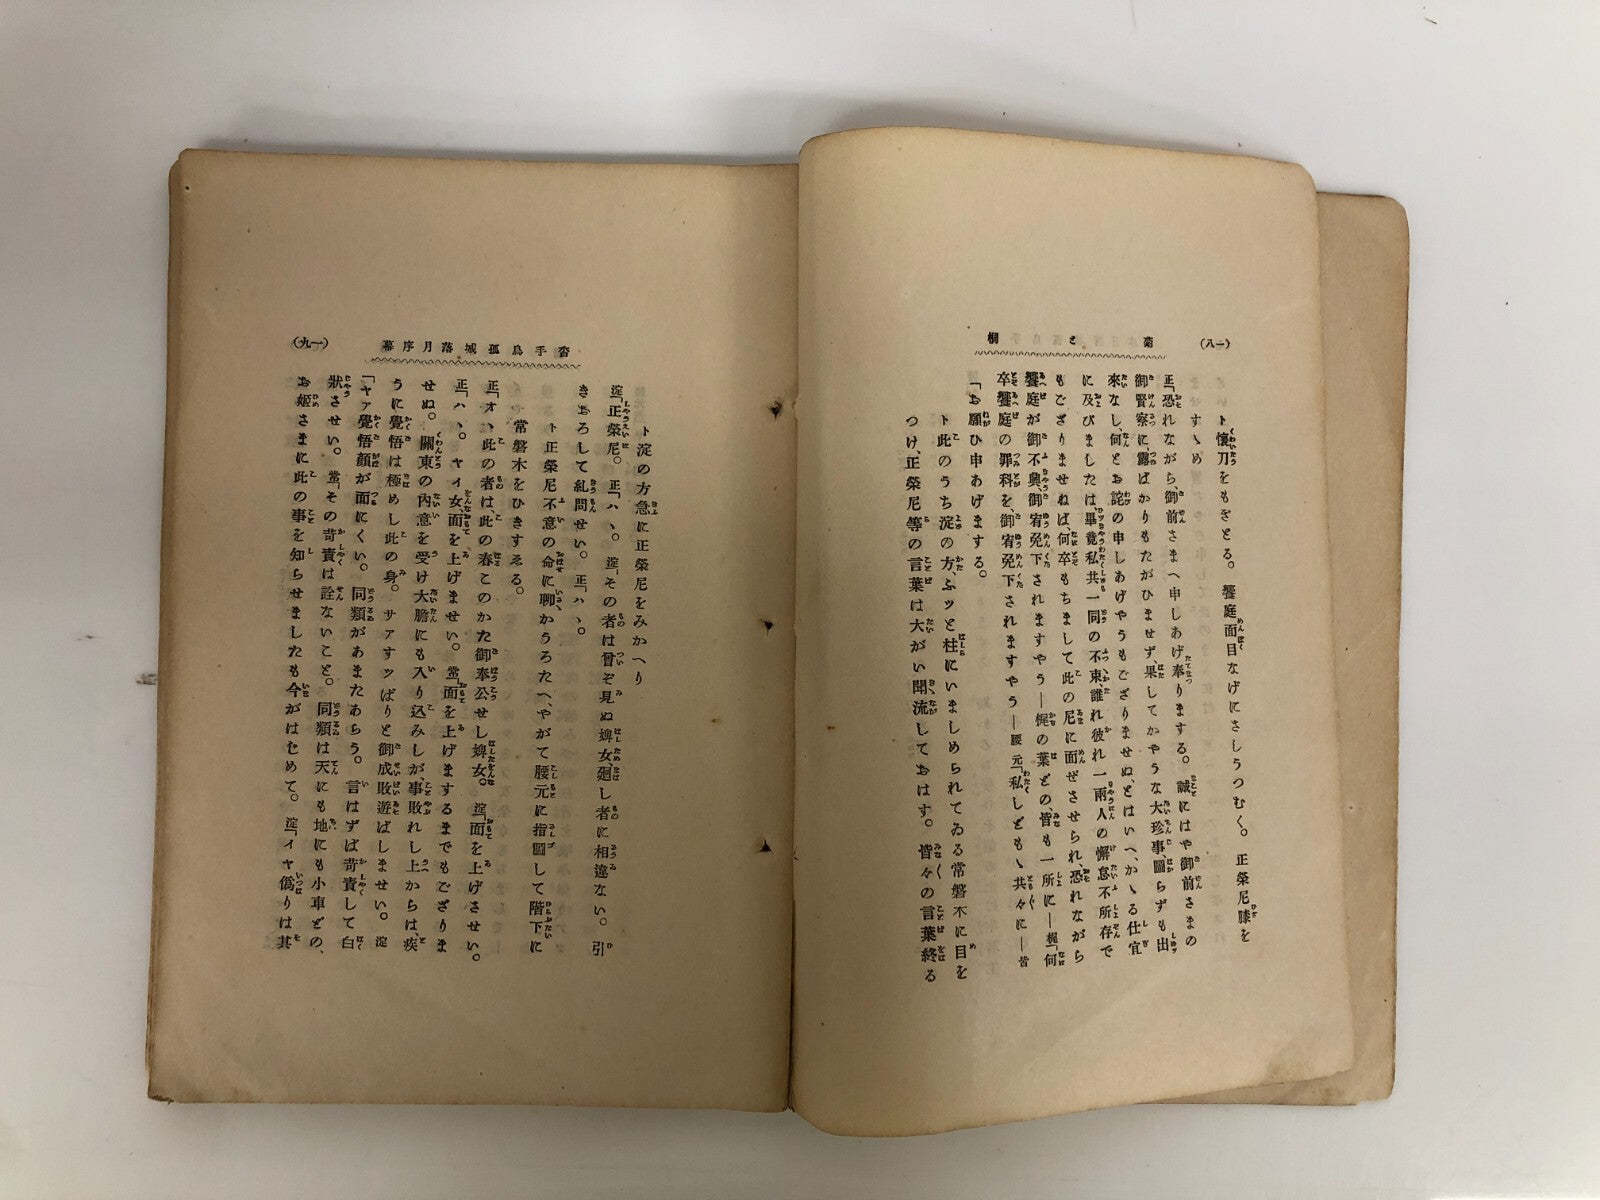 (一八)
菊と桐
ト懷刀をもぎとる。饗庭面目なげにさしうつむく。正榮尼膝を
すゝめ
正「恐れながら、御前さまへ申しあげ奉ります る。誠にはや御前さまの
御賢察に露ばかりもたがひませず果してかやうな大珍事、圖らずも出
來なし、何とお詫の申しあげやうもござりませぬ、とはいへ、かゝる仕宜
に及びましたは、畢竟私共一同の不束、誰れ彼れ一兩人の懈怠不所存で
もござりませねば、何卒もちまして此の尼に面ぜさせられ、恐れながら
饗庭が御不興、御宥免下されますやう—梶の葉どの、皆も一所に—梶「何
卒饗庭の罪科を、御宥免下されますやう—腰元「私しども、共々に—皆
「お願ひ申あげまする。
ト此のうち淀の方、ふツと柱にいましめられてゐる常磐木に目を
つけ、正榮尼等の言葉は大がい聞流しておはす。皆々の言葉終る
(一九)
沓手鳥孤城落月序幕
ト淀の方急に正榮尼をみかへり
淀「正榮尼。正「ハヽ。淀「その者は曾ぞ見ぬ婢女、廻し者に相違ない。引
きおろして糺問せい。正「ハヽ。
ト正榮尼不意の命に聊かうろたへ、やがて腰元に指圖して階下に
常磐木をひきすゑる。
正「オヽ此の者は、此の春このかた御奉公せし婢女。淀「面を上げさせい。
正「ハヽ。ヤイ女、面を上げませい。常「面を上げまするまでもござりま
せぬ。關東の內意を受け大膽にも入り込みしが、事敗れし上からは、疾
うに覺悟は極めし此の身。サアすッぱりと御成敗遊ばしませい。淀
「ヤア覺悟顏が面にくい。同類があまたあらう。言はずば苛責して白
狀させい。常「その苛責は詮ないこと。同類は天にも地にも小車どの、
お姬さまに此の事を知らせましたも今がはじめて。淀「イヤ僞りは其